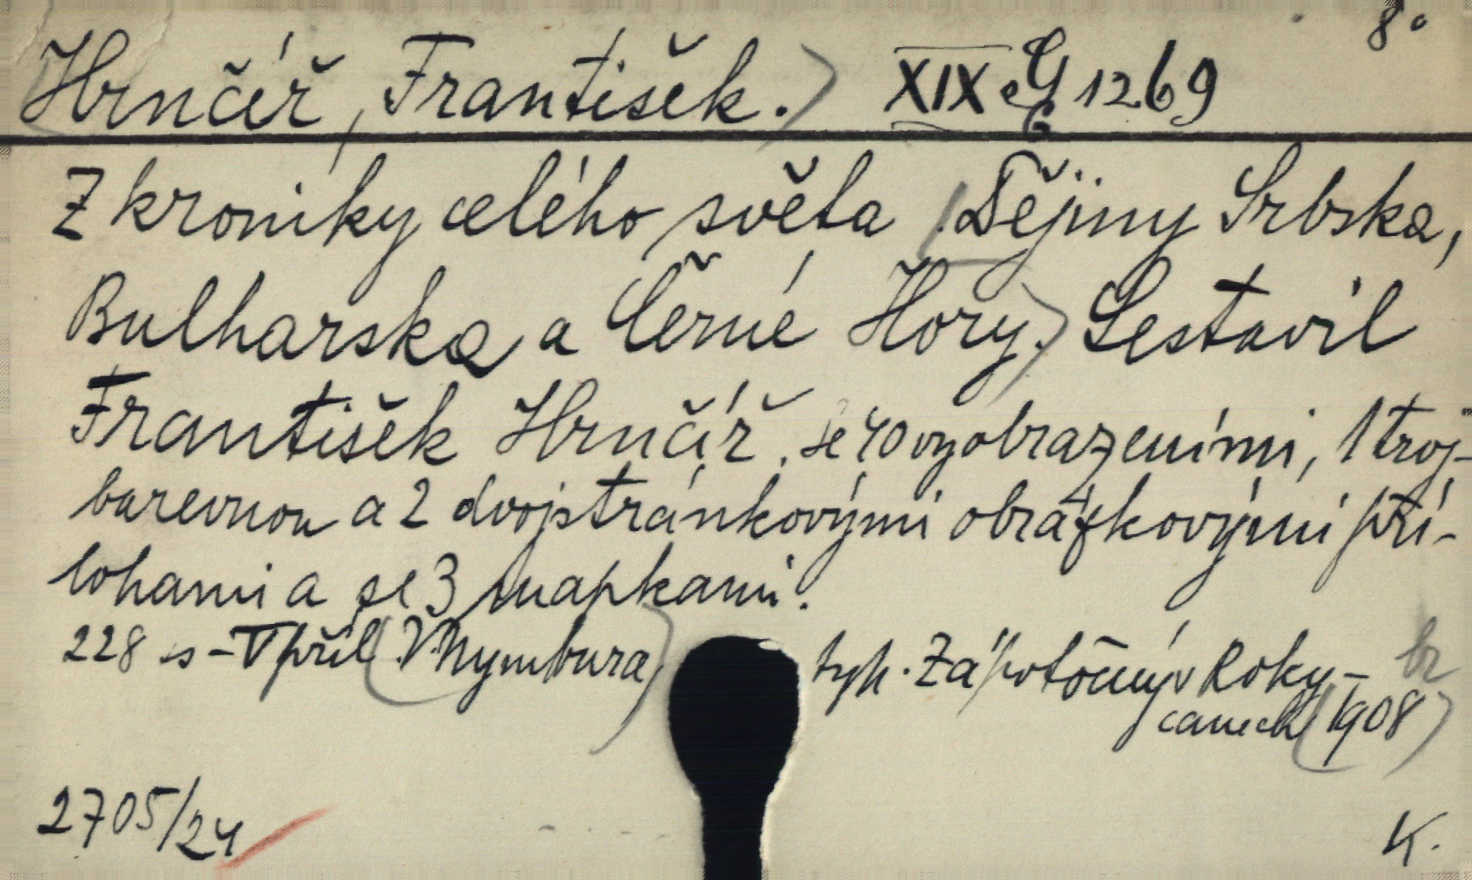 8°
Hrnčíř, František.) XIX G 1269
Z kroniky celého světa (Dějiny Srbska,
Bulharska a Černé Hory.) Sestavil
František Hrnčíř. Se 70 vyobrazeními, 1 troj-
barevnou a 2 dvojstránkovými obrázkovými pří-
lohami a se 3 mapkami.
228 s - V příl (V Nymbura) typ. Zápotočný v Roky-
canech (1908)
br
2705/24
K.